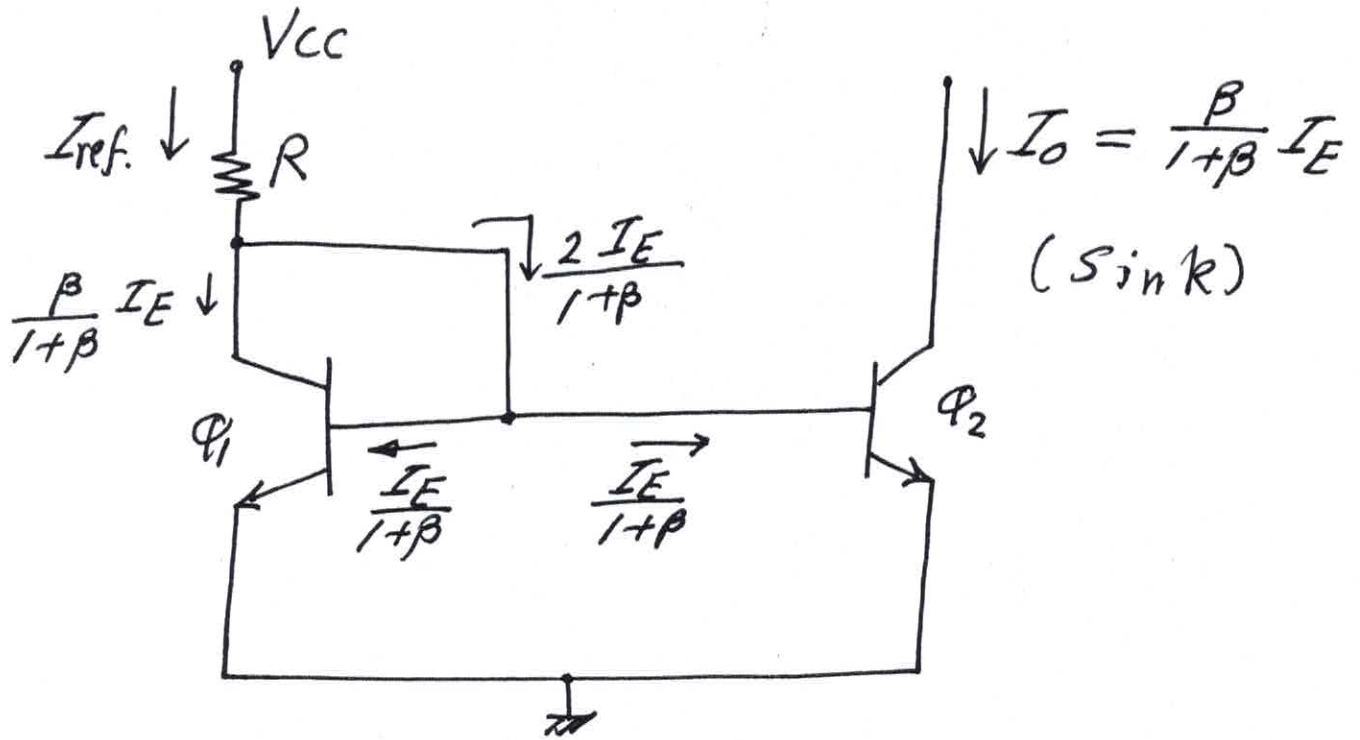 Vcc
Iref.
R
I₀ = β/(1+β) I_E
(Sink)
2 I_E/(1+β)
β/(1+β) I_E
φ₁
φ₂
I_E/(1+β)
I_E/(1+β)